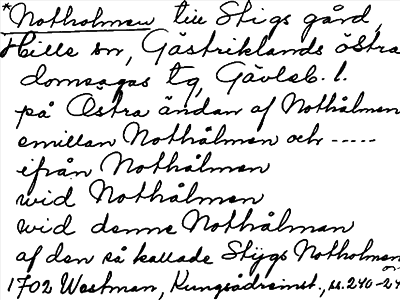 *Notholmen till Stigs gård,
Hille sn, Gästriklands östra
domsagas tg, Gävleb. l.
på Östra ändan af Nothålmen
emillan Nothålmen och -----
ifrån Nothålmen
wid Nothålmen
wid denne Nothålman
af den så kallade Stijgs Notholmen
1702 Westman, Kungsådreinst., s. 240-24